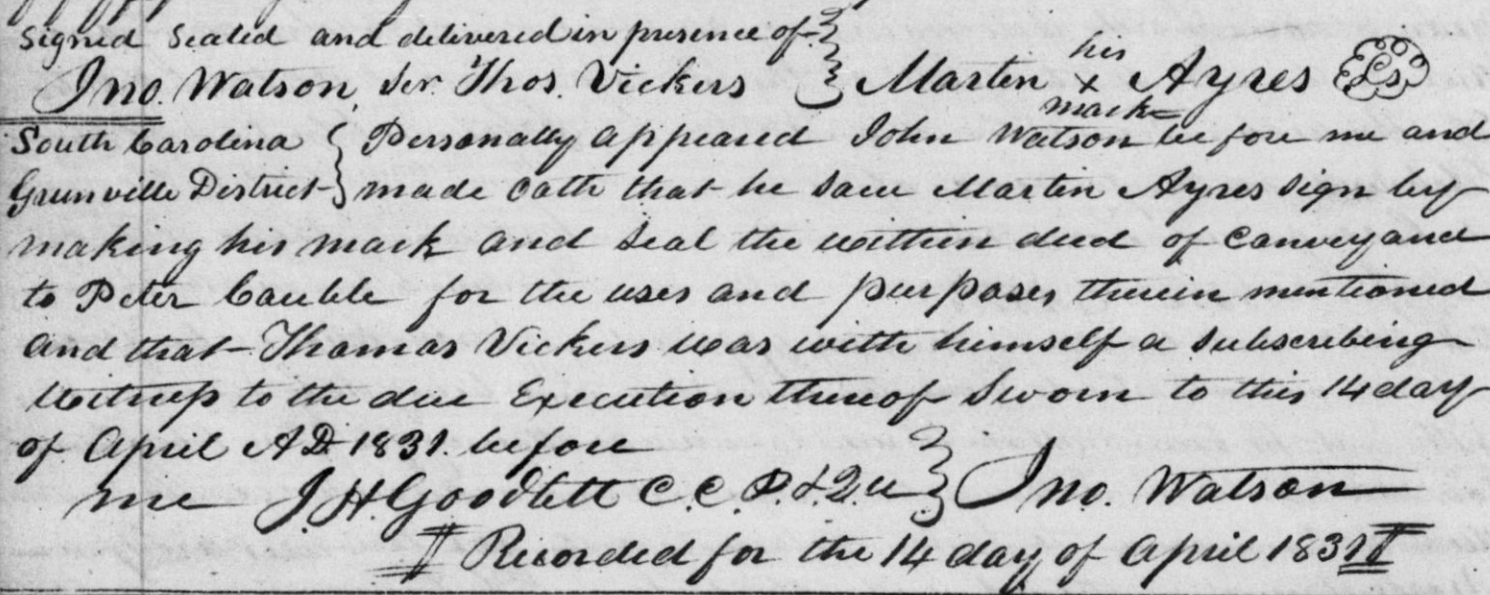 Signed Sealed and delivered in presence of
his
Jno. Watson, Ser. Thos. Vickers } Martin x Ayres LS
mark
South Carolina { Personally appeared John Watson before me and
Greenville District } made oath that he saw Martin Ayres sign by
making his mark and seal the within deed of conveyance
to Peter Cauble for the uses and purposes therein mentioned
and that Thomas Vickers was with himself a subscribing
Witness to the due Execution thereof Sworn to this 14 day
of April AD 1831. before
me J. H. Goodlett C. C. P. & Qu } Jno. Watson
Recorded for the 14 day of April 1831